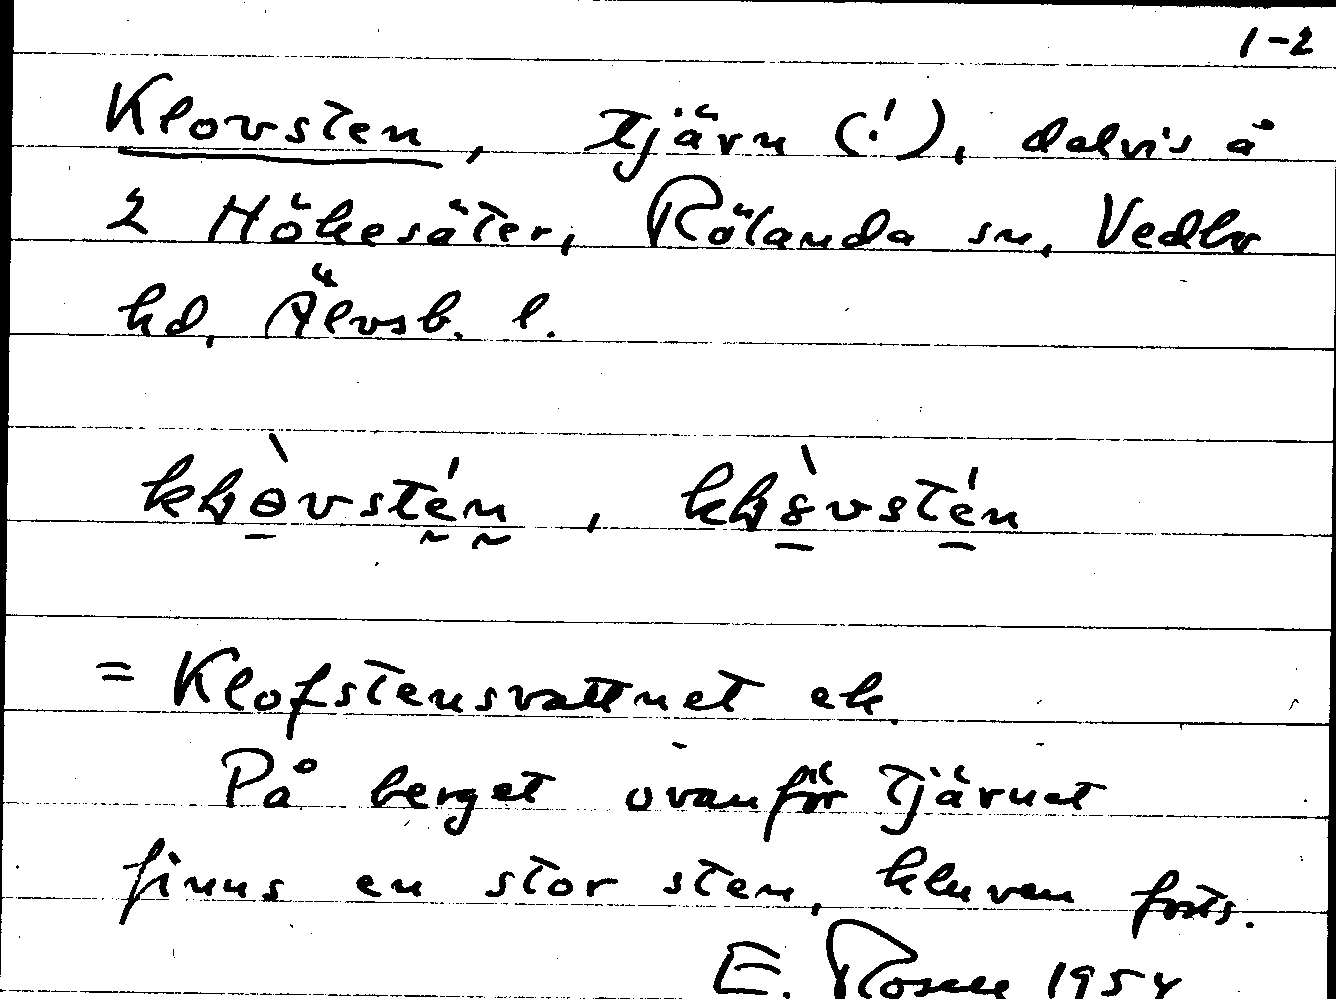 1-2
Klovsten, tjärn (!), delvis å
2 Hökesäter, Rölanda sn, Vedbo
hd, Älvsb. l.
klòvstén, klòvstén
= Klofstensvattnet ek.
På berget ovanför tjärnet
finns en stor sten, kluven forts.
E. Rosell 1954